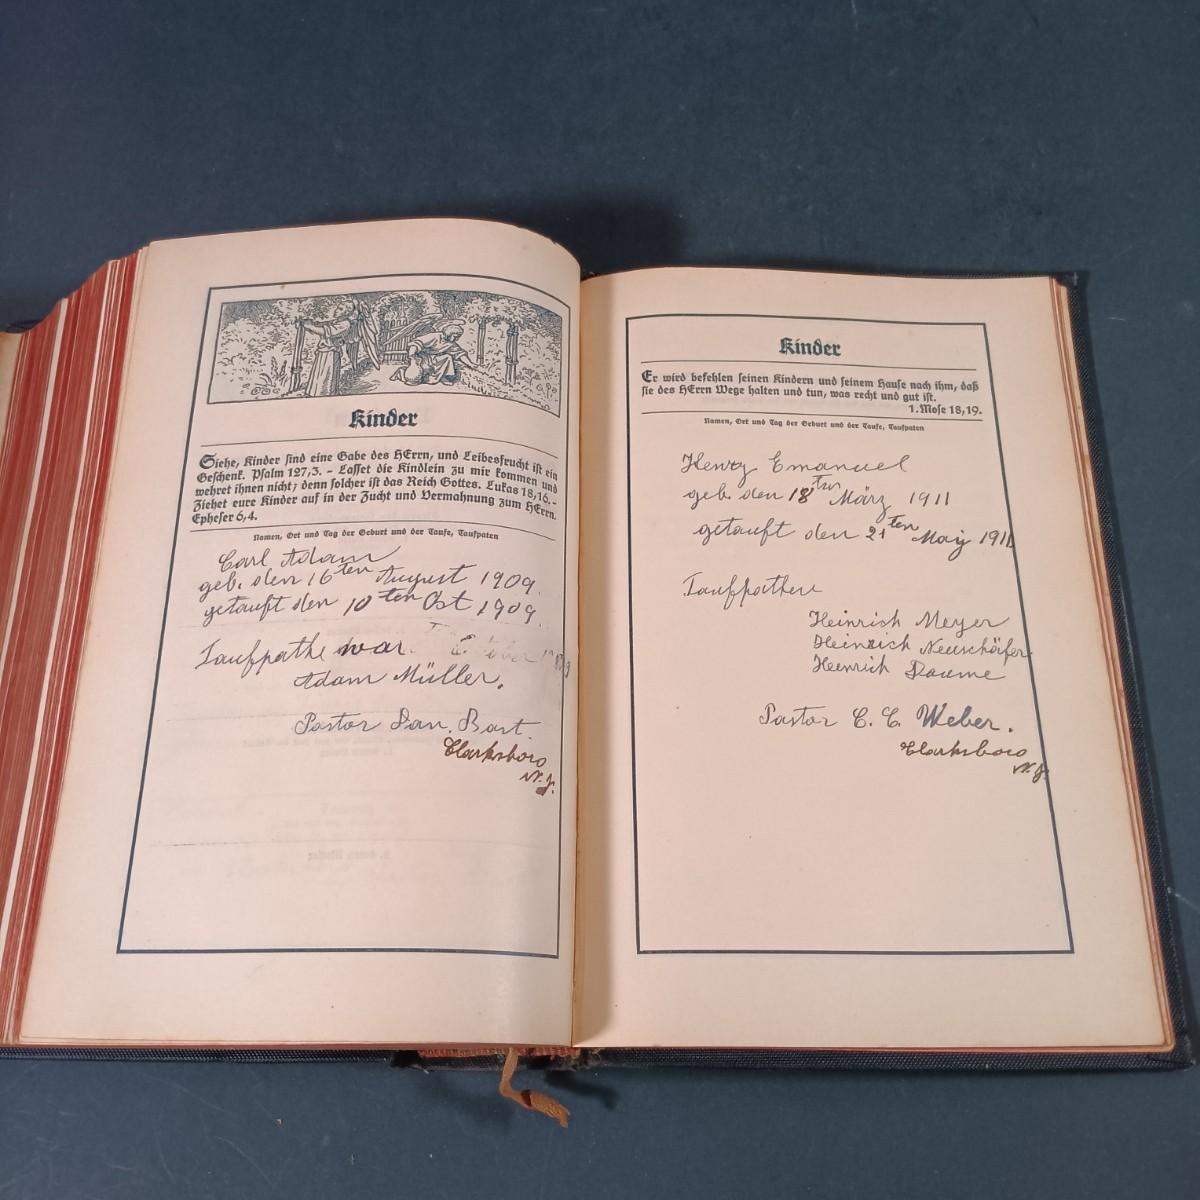 Kinder
Siehe, Kinder sind eine Gabe des HErrn, und Leibesfrucht ist ein
Geschenk. Psalm 127,3. - Lasset die Kindlein zu mir kommen und
wehret ihnen nicht; denn solcher ist das Reich Gottes. Lukas 18,16. -
Ziehet eure Kinder auf in der Zucht und Vermahnung zum HErrn.
Epheser 6,4.
Namen, Ort und Tag der Geburt und der Taufe, Taufpaten
Carl Adam
geb. den 16ten August 1909.
getauft den 10ten Oct 1909.
Taufpathe war.
Adam Müller.
Pastor Dan. Bart.
Clarksboro
N.J.
Kinder
Er wird befehlen seinen Kindern und seinem Hause nach ihm, daß
sie des HErrn Wege halten und tun, was recht und gut ist.
1. Mose 18,19.
Namen, Ort und Tag der Geburt und der Taufe, Taufpaten
Henry Emanuel
geb. den 18ten März 1911
getauft den 21ten May 1911
Taufpathen
Heinrish Meyer
Heinrich Neuschäfer
Heinrich Daume
Pastor C. C. Weber.
Clarksboro
N.J.